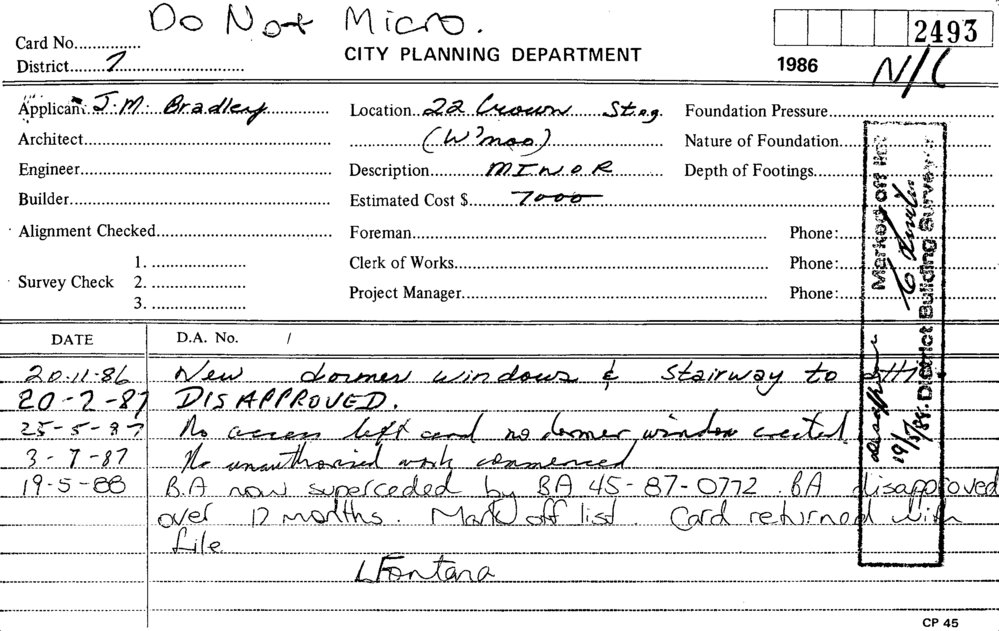 Do Not Micro.
Card No..............
CITY PLANNING DEPARTMENT
2493
District.......7
1986
N/C
Applicant J.M. Bradley
Location...22 Crown St.
Foundation Pressure
Architect
(W'moo)
Nature of Foundation
Engineer
Description MINOR
Depth of Footings
Builder
Estimated Cost $ 7000
Alignment Checked
Foreman
Phone:
Survey Check
1.
2.
3.
Clerk of Works
Phone:
Project Manager
Phone:
Marked off list
District Building Surveyor
19/5/88.
DATE
D.A. No. /
20.11.86 New dormer windows & Stairway to
20-2-87 DISAPPROVED.
25-5-87 No access left card no dormer window created
3-7-87 No unauthorised work commenced
19-5-88 B.A now superceded by BA 45-87-0772. BA disapproved
over 12 months. Mark off list. Card returned with
file.
L Fontana
CP 45